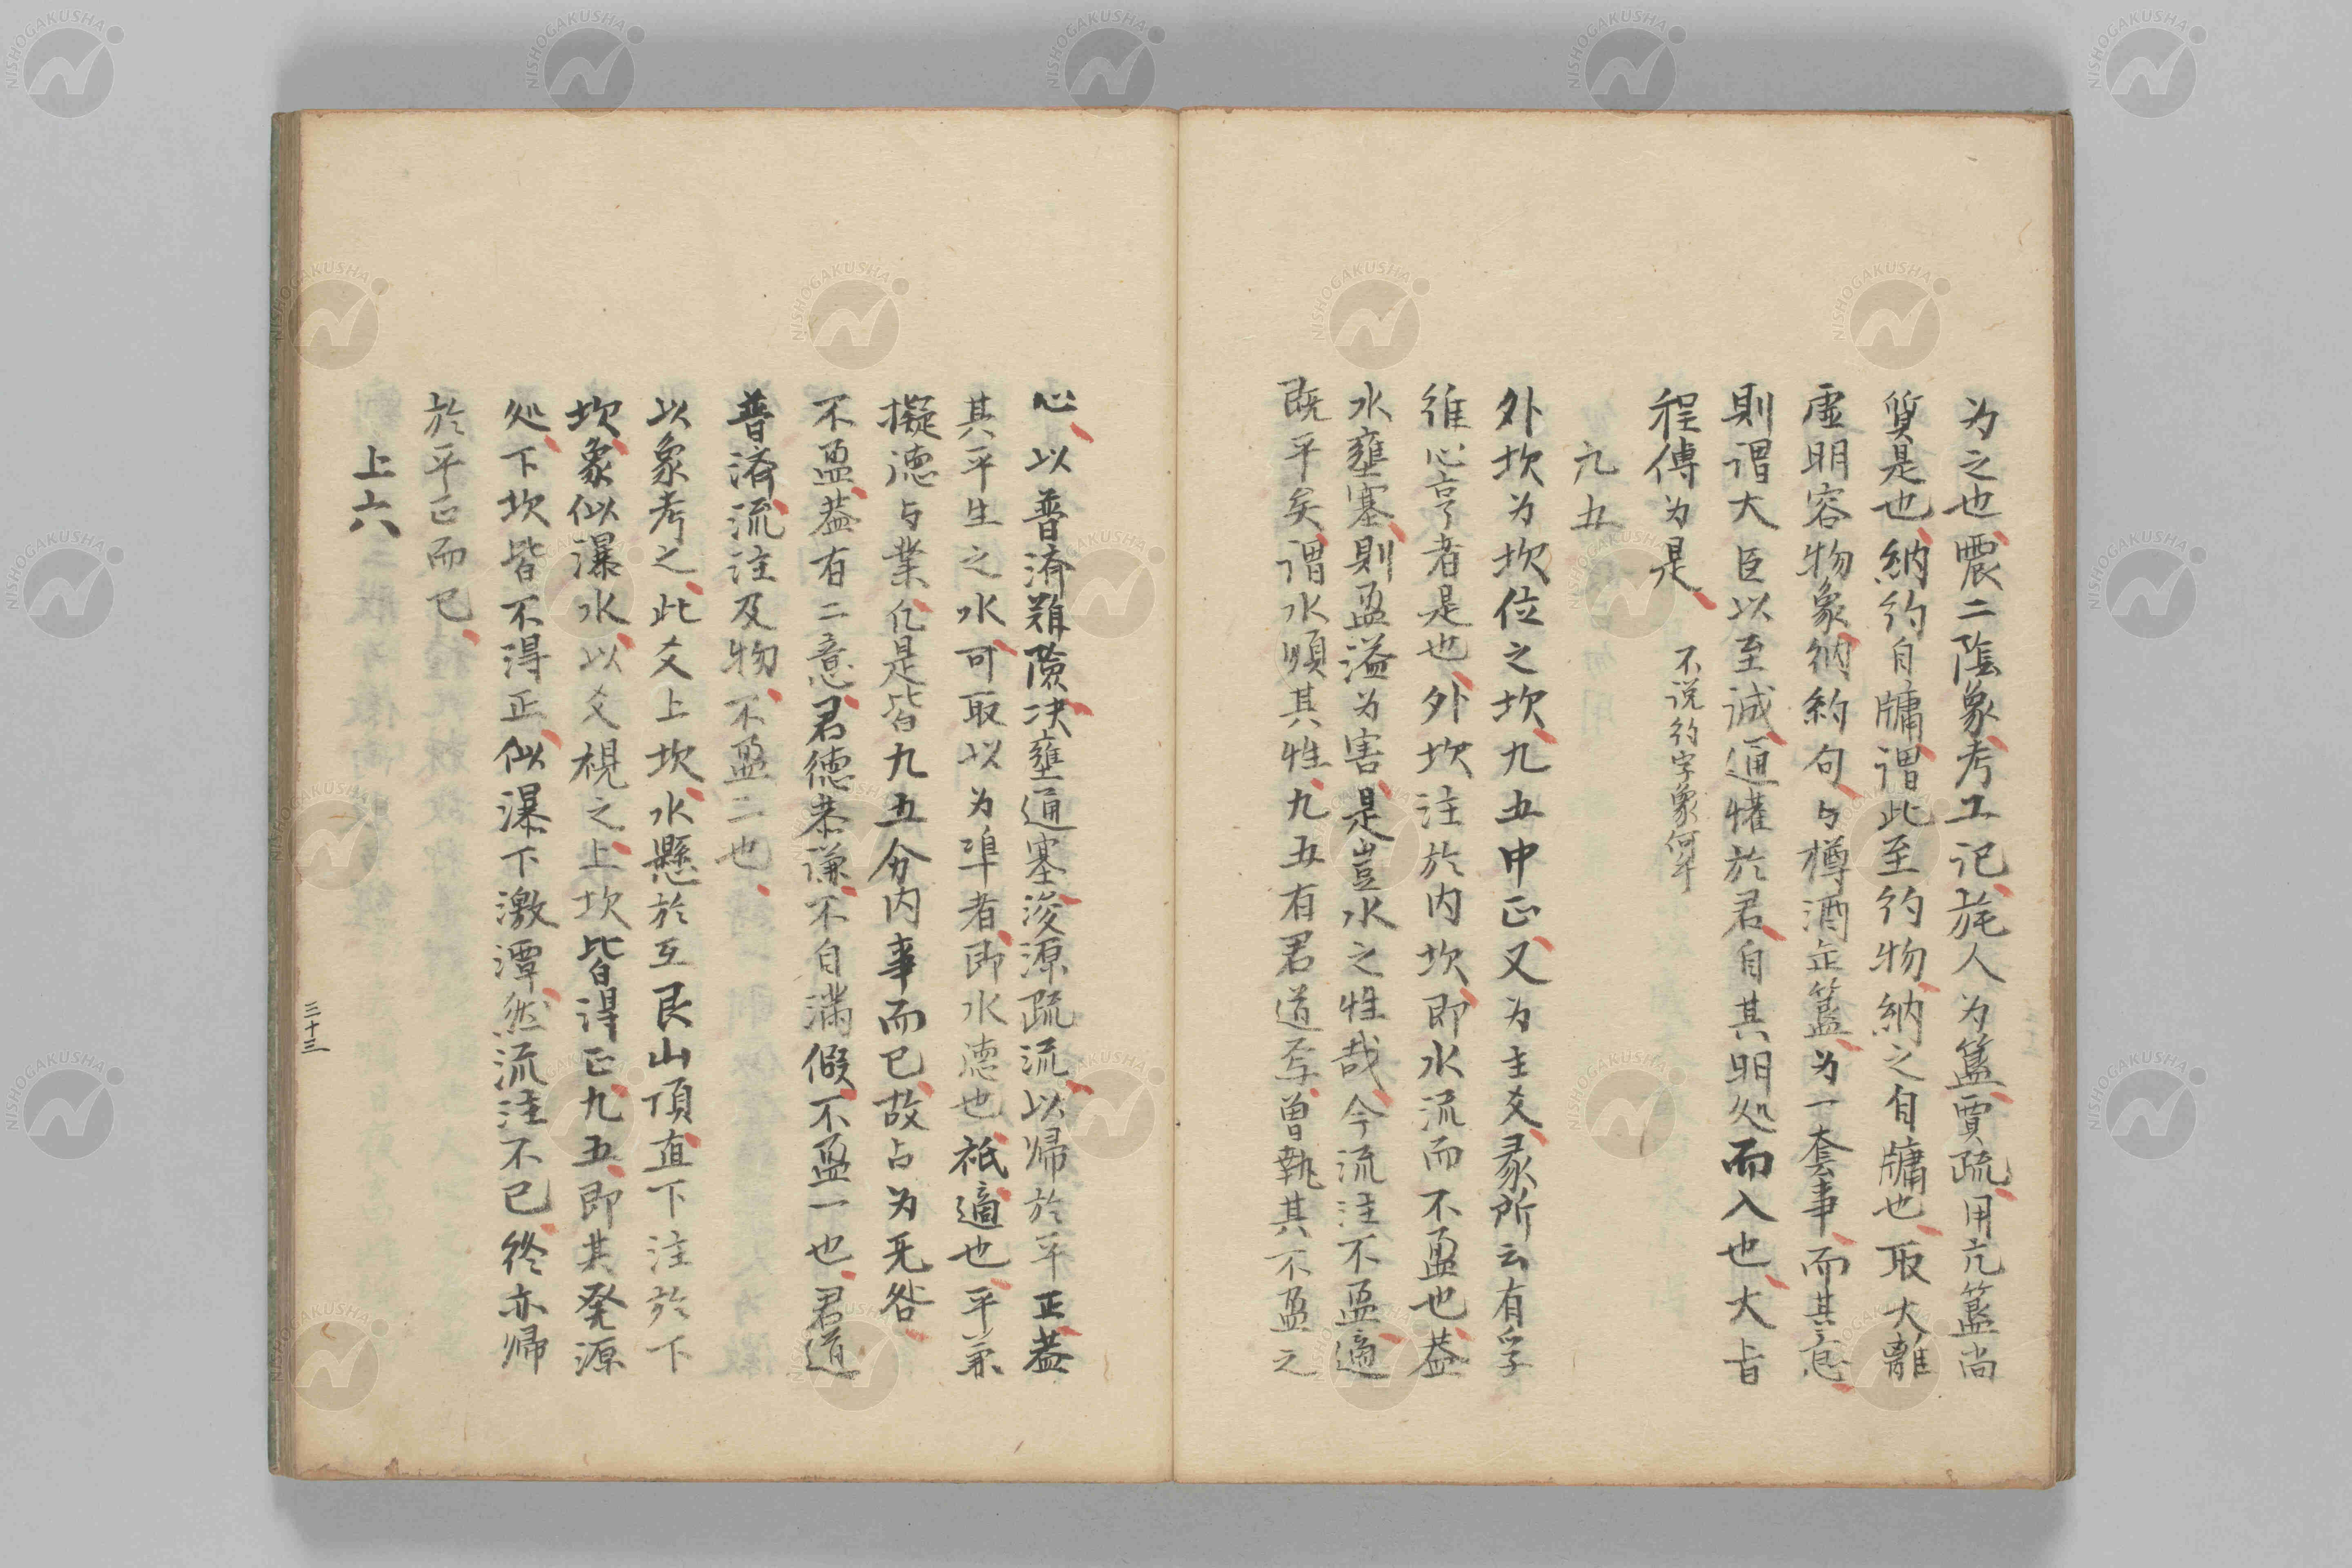 为之也震二陰象考工记旊人为簋賈疏用亢簋尚
質是也納約自牖谓此至约物納之自牖也取大離
虚明容物象納約句与樽酒缶簋为一套事而其意
則谓大臣以至诚通懽於君自其明处而入也大旨
程傳为是 不说约字象何耶
九五
外坎为坎位之坎九五中正又为主爻彖所云有孚
維心亨者是也外坎注於内坎即水流而不盈也蓋
水壅塞則盈溢为害是豈水之性哉今流注不盈適
既平矣谓水順其性九五有君道至尊執其不盈之
心以普済難險决壅通塞浚源疏流以帰於平正蓋
其平生之水可取以为準者即水德也祗適也平兼
擬德与業化是皆九五分内事而已故占为无咎
不盈蓋有二意君德恭谦不自満假不盈一也君道
普済流注及物不盈二也
以象考之此爻上坎水懸於互艮山頂直下注於下
坎象似瀑水以爻視之上坎皆得正九五即其発源
处下坎皆不得正似瀑下激潭然流注不已終亦帰
於平正而已
上六
三十三
NISHOGAKUSHA